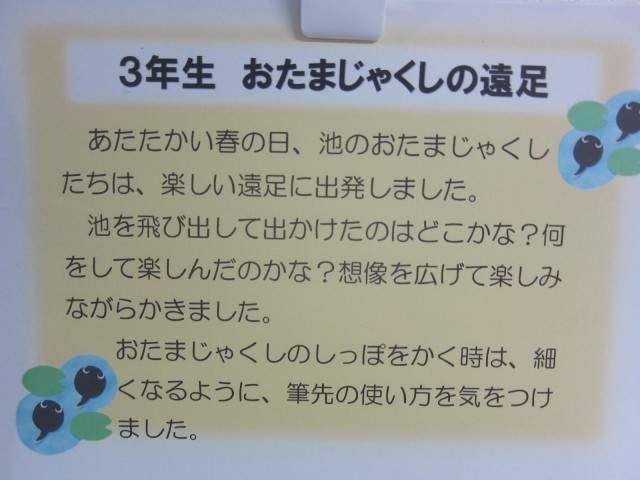 3年生 おたまじゃくしの遠足
あたたかい春の日、池のおたまじゃくし
たちは、楽しい遠足に出発しました。
池を飛び出して出かけたのはどこかな？何
をして楽しんだのかな？想像を広げて楽しみ
ながらかきました。
おたまじゃくしのしっぽをかく時は、細
くなるように、筆先の使い方を気をつけ
ました。